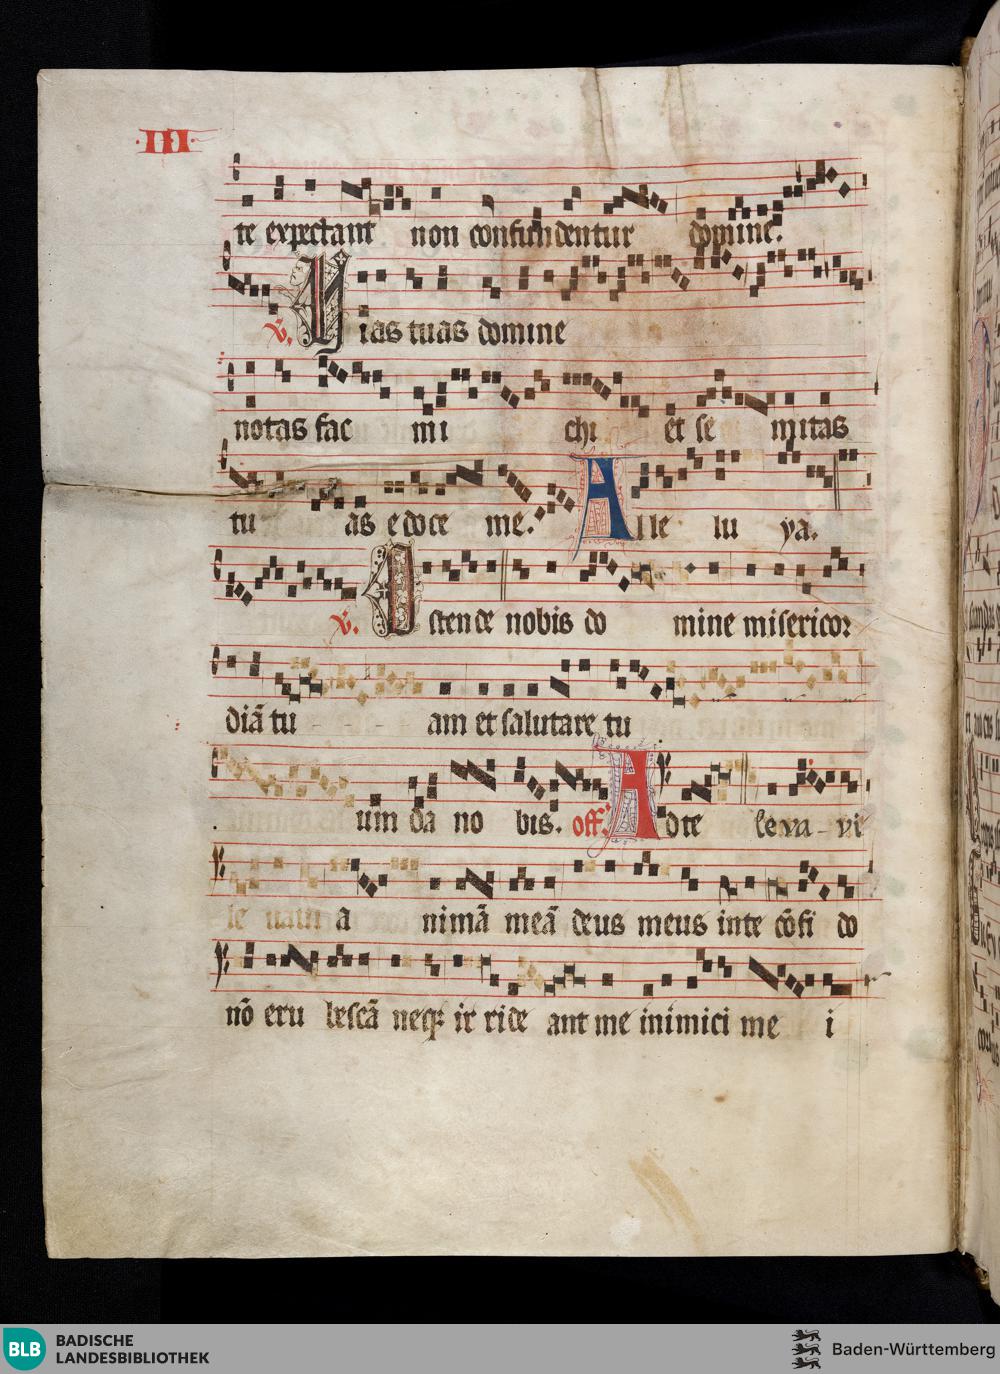 ·III·
te expectant non confundentur domine.
V. Vias tuas domine
notas fac mi chi et se mitas
tu as edoce me. Alle lu ya.
V. Ostende nobis do mine misericor
diã tu - - - am et salutare tu
um da no bis. off. Ad te le va - vi
le uaui a nimã meã deus meus in te cõfi do
nõ eru bescã neqꝫ ir ride ant me inimici me i
BLB BADISCHE
LANDESBIBLIOTHEK
Baden-Württemberg